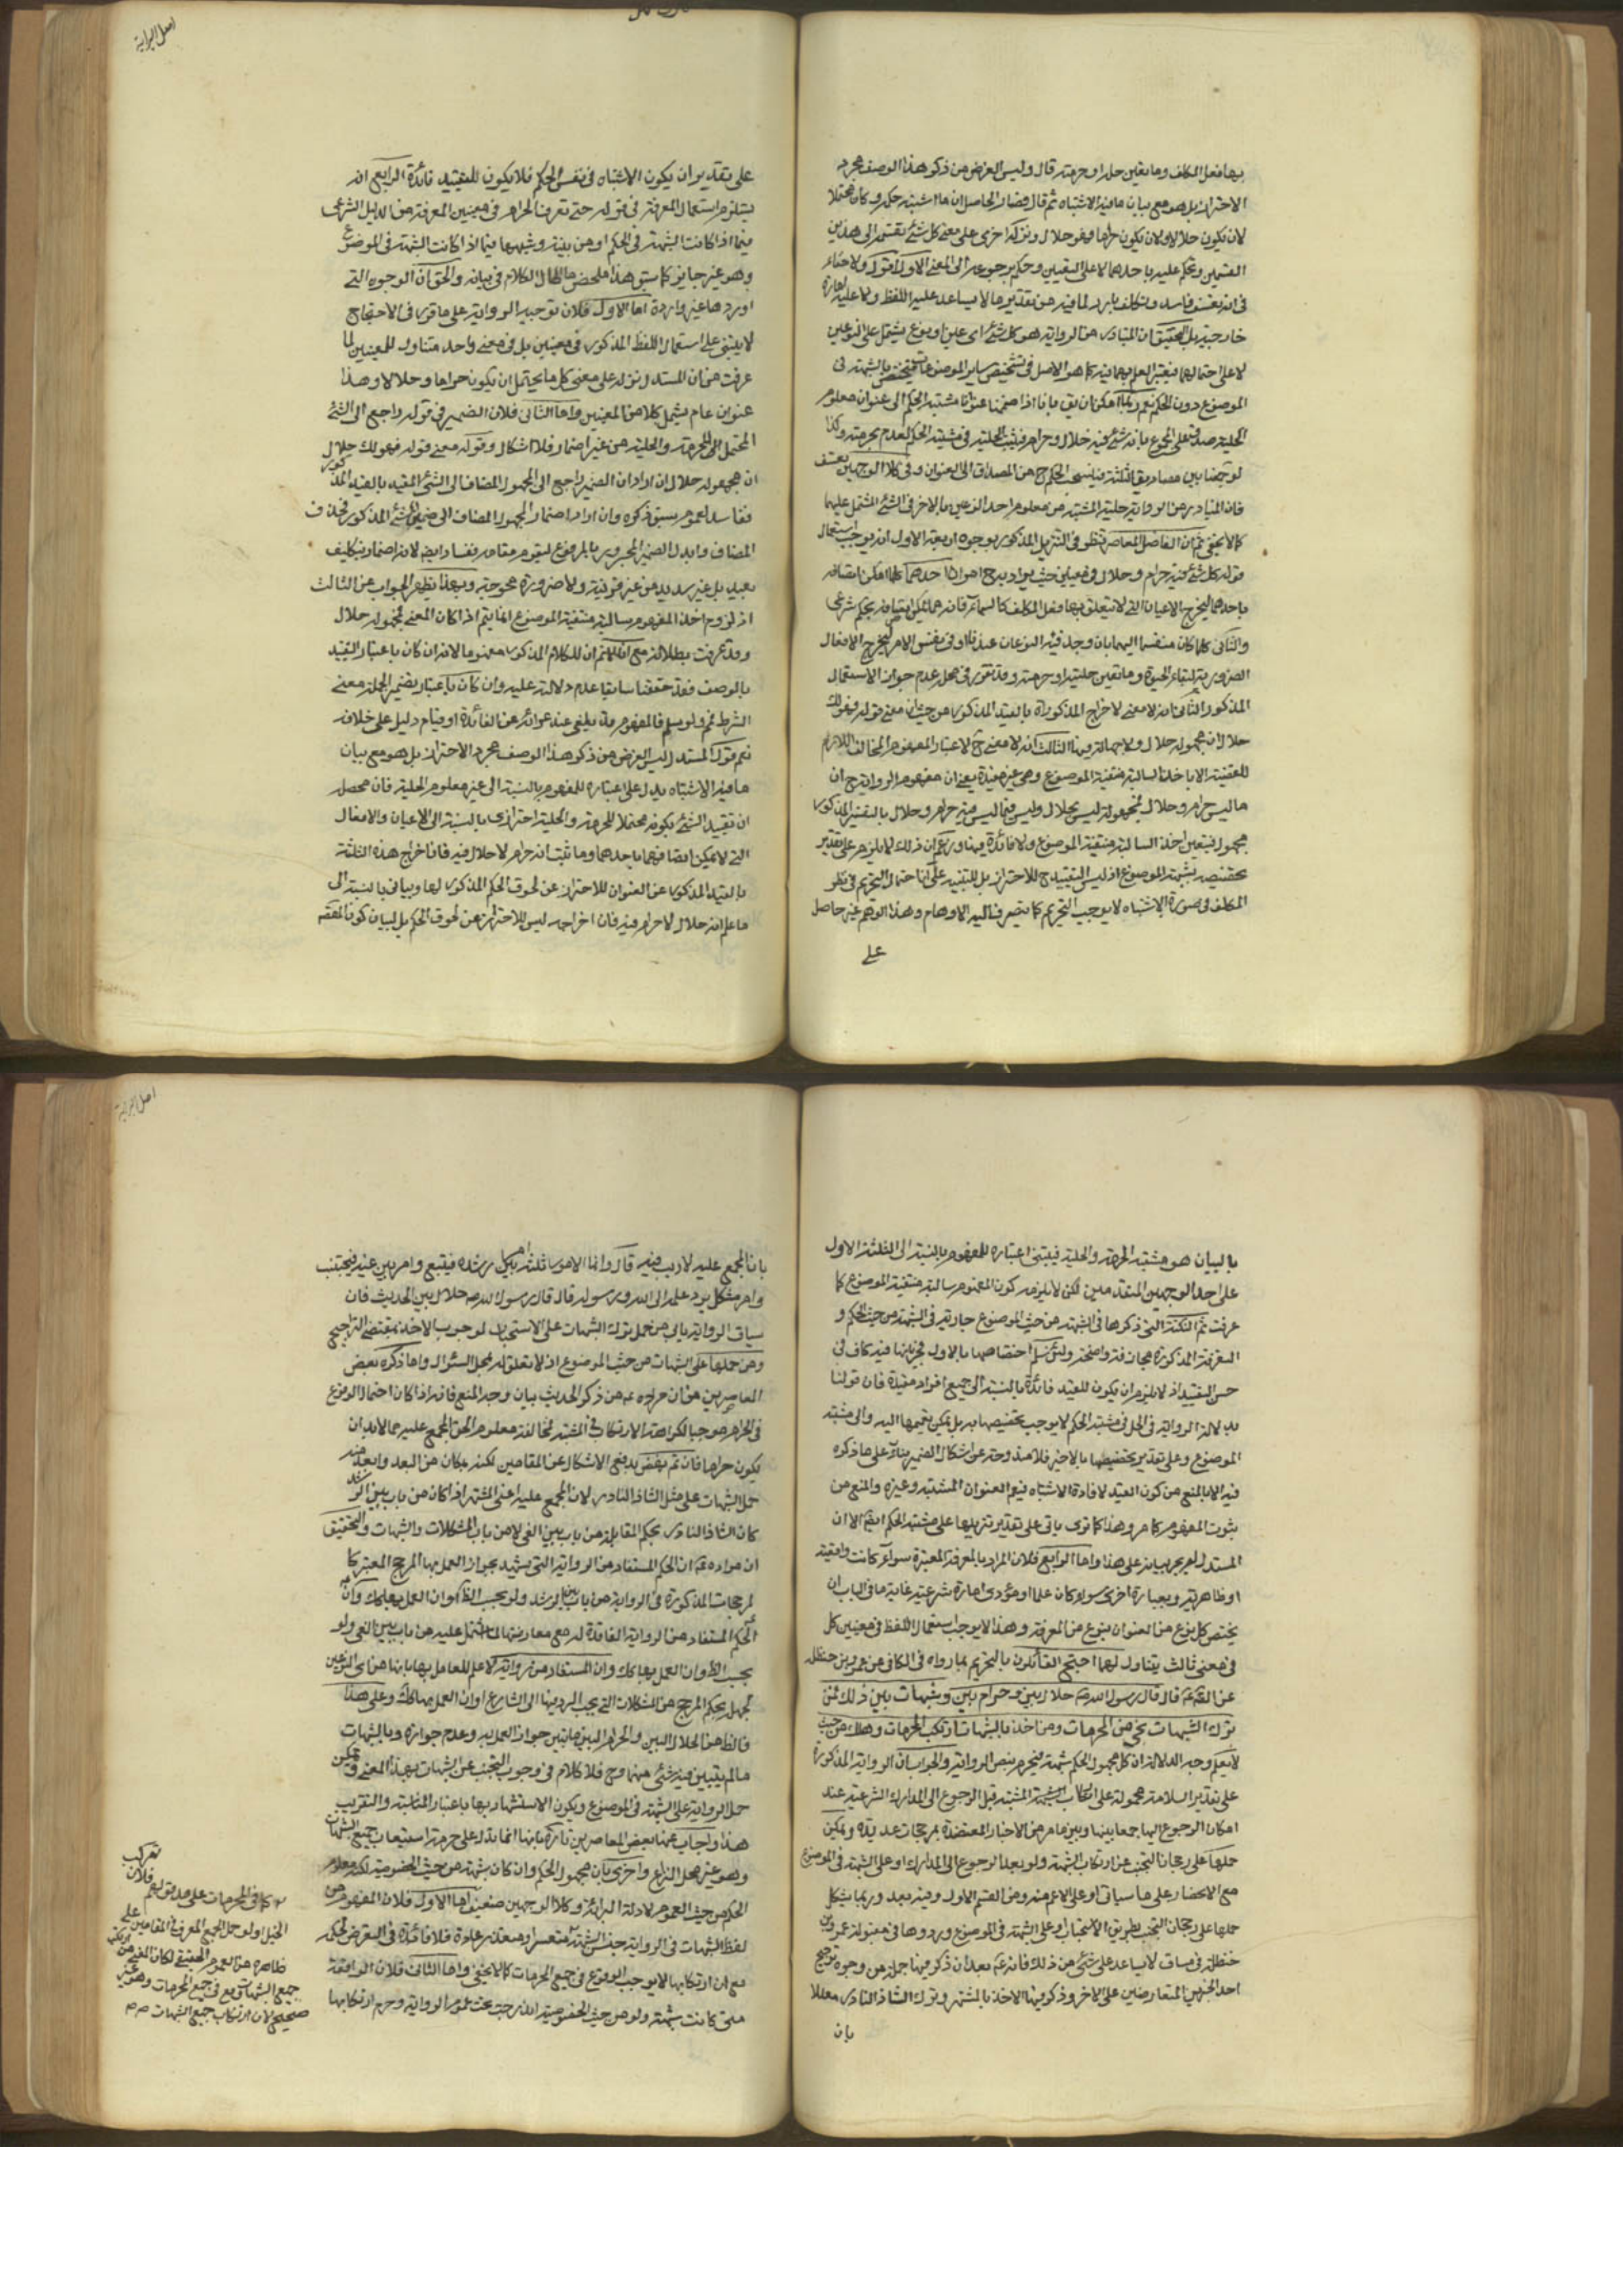 بها فعل المكلف وما تعين حله او حرمته قال وليس الغرض من ذكر هذا الوصف مجرد
الاحتراز بل هو مع بيان ما فيه الاشتباه ثم قال فصار الحاصل ان ما اشتبه حكمه وكان محتملا
لان يكون حلالا ولان يكون حراما فهو حلال ونزله اخرى على معنى كل شئ ينقسم الى هذين
القسمين ويحكم عليه باحدهما لا على التعيين وحكم برجوعه الى المعنى الاول اقول ولا خفاء
في انه تعسف فاسد وتكلف بارد لما فيه من تقدير ما لا يساعد عليه اللفظ ولا عليه امارة
خارجية بل التحقيق ان المتبادر من الرواية هو كل شئ اى عين او نوع يشتمل على النوعين
لا على احتمالهما فيعتبر العلم بهما فيه كما هو الاصل في تشخيص ساير الموضوعات فيختص بالشبهة في
الموضوع دون الحكم نعم ربما امكن ان يق بانا اذا ضممنا عنوانا مشتبه الحكم الى عنوان معلوم
الحلية صدق على المجموع بانه شئ فيه حلال وحرام فيثبت الحلية في مشتبه الحكم لعدم حرمته وكذا
لو جمعنا بين مصاديق الثلثة فينسحب الحكم ح من المصداق الى العنوان وفي كلا الوجهين تعسف
فان المتبادر من الرواية حلية المشتبه من معلوم احد النوعين بالاخر في الشئ المشتمل عليهما
كما لا يخفى ثم ان الفاضل المعاصر تنظر في التنزيل المذكور بوجوه اربعة الاول انه يوجب استعمال
قوله كل شئ فيه حرام وحلال في معنيين حيث يراد به ح امران احدهما كلما امكن اتصافه
باحدهما ليخرج الاعيان التي لا يتعلق بها فعل المكلف كالسماء فانه مما لا يمكن اتصافه بحكم شرعى
والثاني كلما كان منقسما اليهما بان وجد فيه النوعان عندنا او في نفس الامر ليخرج الافعال
الضرورية لبقاء الحيوة وما تعين حليته او حرمته وقد تقرر في محله عدم جواز الاستعمال
المذكور الثاني انه لا معنى لاخراج المذكورات بالقيد المذكور من حيث ان معنى قوله فهو لك
حلال ان مجهوله حلال ولا جهالة فيها الثالث انه لا معنى ح لاعتبار المفهوم المخالف اللازم
للقضية الا باخذ السالبة منتفية الموضوع وهي غير مفيدة يعنى ان مفهوم الرواية ح ان
ما ليس حرام وحلال فمجهوله ليس بحلال وليس فيما ليس فيه حرام وحلال بالتفسير المذكور
مجهول فيتعين اخذ السالبة منتفية الموضوع ولا فائدة فيها ورغم ان ذلك لا يلزم على تقدير
تخصيصه بشبهة الموضوع اذ ليس التقييد ح للاحتراز بل للتنبيه على ان احتمال التحريم في نظر
المكلف في صورة الاشتباه لا يوجب التحريم كما يتصرف اليه الاوهام وهذا التوهم غير حاصل
على
اصل البراية
على تقدير ان يكون الاشتباه في نفس الحكم فلا يكون للتقييد فائدة الرابع انه
يستلزم استعمال المعرفة في قوله حتى تعرف الحرام في معنيين المعرفة من الدليل الشرعى
فيما اذا كانت الشبهة في الحكم او من بينة وشبهها فيما اذا كانت الشبهة في الموضوع
وهو غير جايز كما سبق هذا ملخص ما اطال الكلام في بيانه والحق ان الوجوه التي
اوردها غير واردة اما الاول فلان توجيه الرواية على ما قرره في الاحتجاج
لا يبتنى على استعمال اللفظ المذكور في معنيين بل في معنى واحد متناول للمعنيين لما
عرفت من ان المستدل نزله على معنى كل ما يحتمل ان يكون حراما وحلالا وهذا
عنوان عام يشمل كلا من المعنيين واما الثاني فلان الضمير في قوله راجع الى الشئ
المحتمل للحرمة والحلية من غير اضمار فلا اشكال وقوله معنى قوله فهو لك حلال
ان مجهوله حلال ان اراد ان الضمير راجع الى المجهول المضاف الى الشئ المقيد بالقيد المذكور
ففاسد لعموم سبق ذكره وان اراد اضمار المجهول المضاف الى ضمير الشئ المذكور فحذف
المضاف وابدل الضمير المجرور بالمرفوع ليقوم مقامه ففساد ايضا لانه اضمار وتكليف
بعيد بل غير سديد من غير قرينة ولا ضرورة محوجة وبهذا يظهر الجواب عن الثالث
اذ لزوم اخذ المفهوم سالبة منتفية الموضوع انما يتم اذا كان المعنى فمجهوله حلال
وقد عرفت بطلانه مع انا لا نم ان للكلام المذكور مفهوما لانه ان كان باعتبار التقييد
بالوصف فقد حققنا سابقا عدم دلالته عليه وان كان باعتبار تضمن الجملة معنى
الشرط فم ولو سلم فالمفهوم قد يلغى عند عرائه عن الفائدة او قيام دليل على خلافه
نعم قول المستدل ليس الغرض من ذكر هذا الوصف مجرد الاحتراز بل هو مع بيان
ما فيه الاشتباه يدل على اعتباره للمفهوم بالنسبة الى غير معلوم الحلية فان محصله
ان تقييد الشئ بكونه محتملا للحرمة والحلية احترازى بالنسبة الى الاعيان والافعال
التي لا يمكن اتصافها باحدهما وما ثبت انه حرام لا حلال فيه فان اخراج هذه الثلثة
بالقيد المذكور عن العنوان للاحتراز عن لحوق الحكم المذكور لها وبيانى بالنسبة الى
ما علم انه حلال لا حرام فيه فان اخراجه ليس للاحتراز عن لحوق الحكم بل لبيان كون المقصود
بالبيان هو مشتبه الحرمة والحلية فيبتنى اعتباره للمفهوم بالنسبة الى الثلثة الاول
على احد الوجهين المتقدمين لكن لا يلزمه كون المفهوم سالبة منتفية الموضوع كما
عرفت ثم النكتة التي ذكرها في الشبهة من حيث الموضوع جارية في الشبهة من حيث الحكم و
التفرقة المذكورة مجازفة واضحة ولئن سلم اختصاصها بالاول فجريانها فيه كاف في
حسن التقييد اذ لا يلزم ان يكون للقيد فائدة بالنسبة الى جميع افراد مقيدة فان قولنا
بدلالة الرواية في الحل في مشتبه الحكم لا يوجب تخصيصها به بل يمكن تعميمها اليه والى مشتبه
الموضوع وعلى تقدير تخصيصها بالاخير فلا مندوحة عن اشكال الضمير بناء على ما ذكره
فيه الا بالمنع من كون القيد لافادة الاشتباه فيعم العنوان المشتبه وغيره والمنع من
ثبوت المفهوم كما مر وهذا كما ترى ياتى على تقدير تنزيلها على مشتبه الحكم ايضا الا ان
المستدل لم يجر بيانه على هذا واما الرابع فلان المراد بالمعرفة المعتبرة سواء كانت واقعية
او ظاهرية وبعبارة اخرى سواء كان علما او مؤدى امارة شرعية غاية ما في الباب ان
يختص كل نوع من العنوان بنوع من المعرفة وهذا لا يوجب استعمال اللفظ في معنيين كل
في معنى ثالث يتناول لهما احتج القائلون بالتحريم بما رواه في الكافي عن عمر بن حنظلة
عن الصادق ع قال قال رسول الله ص حلال بين وحرام بين وشبهات بين ذلك فمن
ترك الشبهات نجى من المحرمات ومن اخذ بالشبهات ارتكب المحرمات وهلك من حيث
لا يعلم وجه الدلالة ان كل مجهول الحكم شبهة فيحرم بنص الرواية والجواب ان الرواية المذكورة
على تقدير السلامة محمولة على ارتكاب الشبهة المشتبه قبل الرجوع الى المدارك الشرعية عند
امكان الرجوع اليها جمعا بينها وبين ما مر من الاخبار المعتضدة بمرجحات عديدة ويمكن
حملها على رجحان التجنب عن ارتكاب الشبهة ولو بعد الرجوع الى المدارك او على الشبهة في الموضوع
مع الانحصار على ما سياتى او على الاعم منه ومن القسم الاول وفيه بعد وربما يشكل
حملها على رجحان التجنب بطريق الاستحباب او على الشبهة في الموضوع ورودها في مقبولة عمر بن
حنظلة في مساق لا يساعد على شئ من ذلك فانه ع بعد ان ذكر فيها جملة من وجوه ترجيح
احد الخبرين المتعارضين على الاخر وذكر فيها الاخذ بالمشتهر وترك الشاذ النادر معللا
بان
اصل البراية
بان المجمع عليه لا ريب فيه قال وانما الامور ثلثة امر بين رشده فيتبع وامر بين غيه فيجتنب
وامر مشكل يرد علمه الى الله ورسوله قال قال رسول الله ص حلال بين الحديث فان
سياق الرواية يابى من حمل ترك الشبهات على الاستحباب لوجوب الاخذ بمقتضى الترجيح
ومن حملها على الشبهات من حيث الموضوع اذ لا تعلق له بمحل السئوال واما ذكره بعض
المعاصرين من ان مراده ع من ذكر الحديث بيان وجه المنع فانه اذا كان احتمال الوقوع
في الحرام موجبا لكراهة الارتكاب في المشتبه فمخالفة معلوم الحق المجمع عليه مما لا بد ان
يكون حراما فان تم نهض بدفع الاشكال عن المقامين لكنه بمكان من البعد وابعد منه
حمل الشبهات على مثل الشاذ النادر لان المجمع عليه اعنى المشتهر اذا كان من باب بين الرشد
كان الشاذ النادر بحكم المقابلة من باب بين الغى لا من باب المشكلات والشبهات والتحقيق
ان مراده ع ان الحكم المستفاد من الرواية التي يشهد بجواز العمل بها المرجح المعتبر كا
لمرجحات المذكورة في الرواية من باب بين الرشد ولو بحسب الظ كوان العمل بها كك وان
الحكم المستفاد من الرواية الفاقدة له مع معارضتها لما اشتمل عليه من باب بين الغى ولو
بحسب الظ وان العمل بها كك وان المستفاد من رواية لا علم للعامل بها بانها من اى النوعين
لجهله بحكم المرجح من المشكلات التي يجب الرد فيها الى الشارع او ان العمل بها كك وعلى هذا
فالظ من الحلال البين والحرام البين ما تبين جواز العمل به وعدم جوازه وبالشبهات
ما لم يتبين فيه شئ منهما وح فلا كلام في وجوب التجنب عن الشبهات بهذا المعنى ويمكن
حمل الرواية على الشبهة في الموضوع ويكون الاستشهاد بها باعتبار المناسبة والتقريب
هذا واجاب عنها بعض المعاصرين تارة بانها انما تدل على حرمة استيعاب جميع الشبهات
وهو غير محل النزاع واخرى بان مجهول الحكم وان كان شبهة من حيث الخصوصية لكنه معلوم
الحكم من حيث العموم لادلة البرائة وكلا الوجهين ضعيف اما الاول فلان المفهوم من
لفظ الشبهات في الرواية جنس الشبهة متعسر او متعذر عادة فلا فائدة في التعرض لحكمه
مع ان ارتكابها لا يوجب الوقوع في جميع المحرمات كما لا يخفى واما الثاني فلان الواقعة
متى كانت شبهة ولو من حيث الخصوصية اندرجت تحت عموم الرواية وحرم ارتكابها
كما في المحرمات على حد قولهم فلان
يركب
الخيل اولو حمل الجمع المعرف في المقامين على
ظاهره من العموم الحقيقى لكان المعنى من ارتكب
جميع الشبهات وقع في جميع المحرمات وهو غير
صحيح لان ارتكاب جميع الشبهات ص م